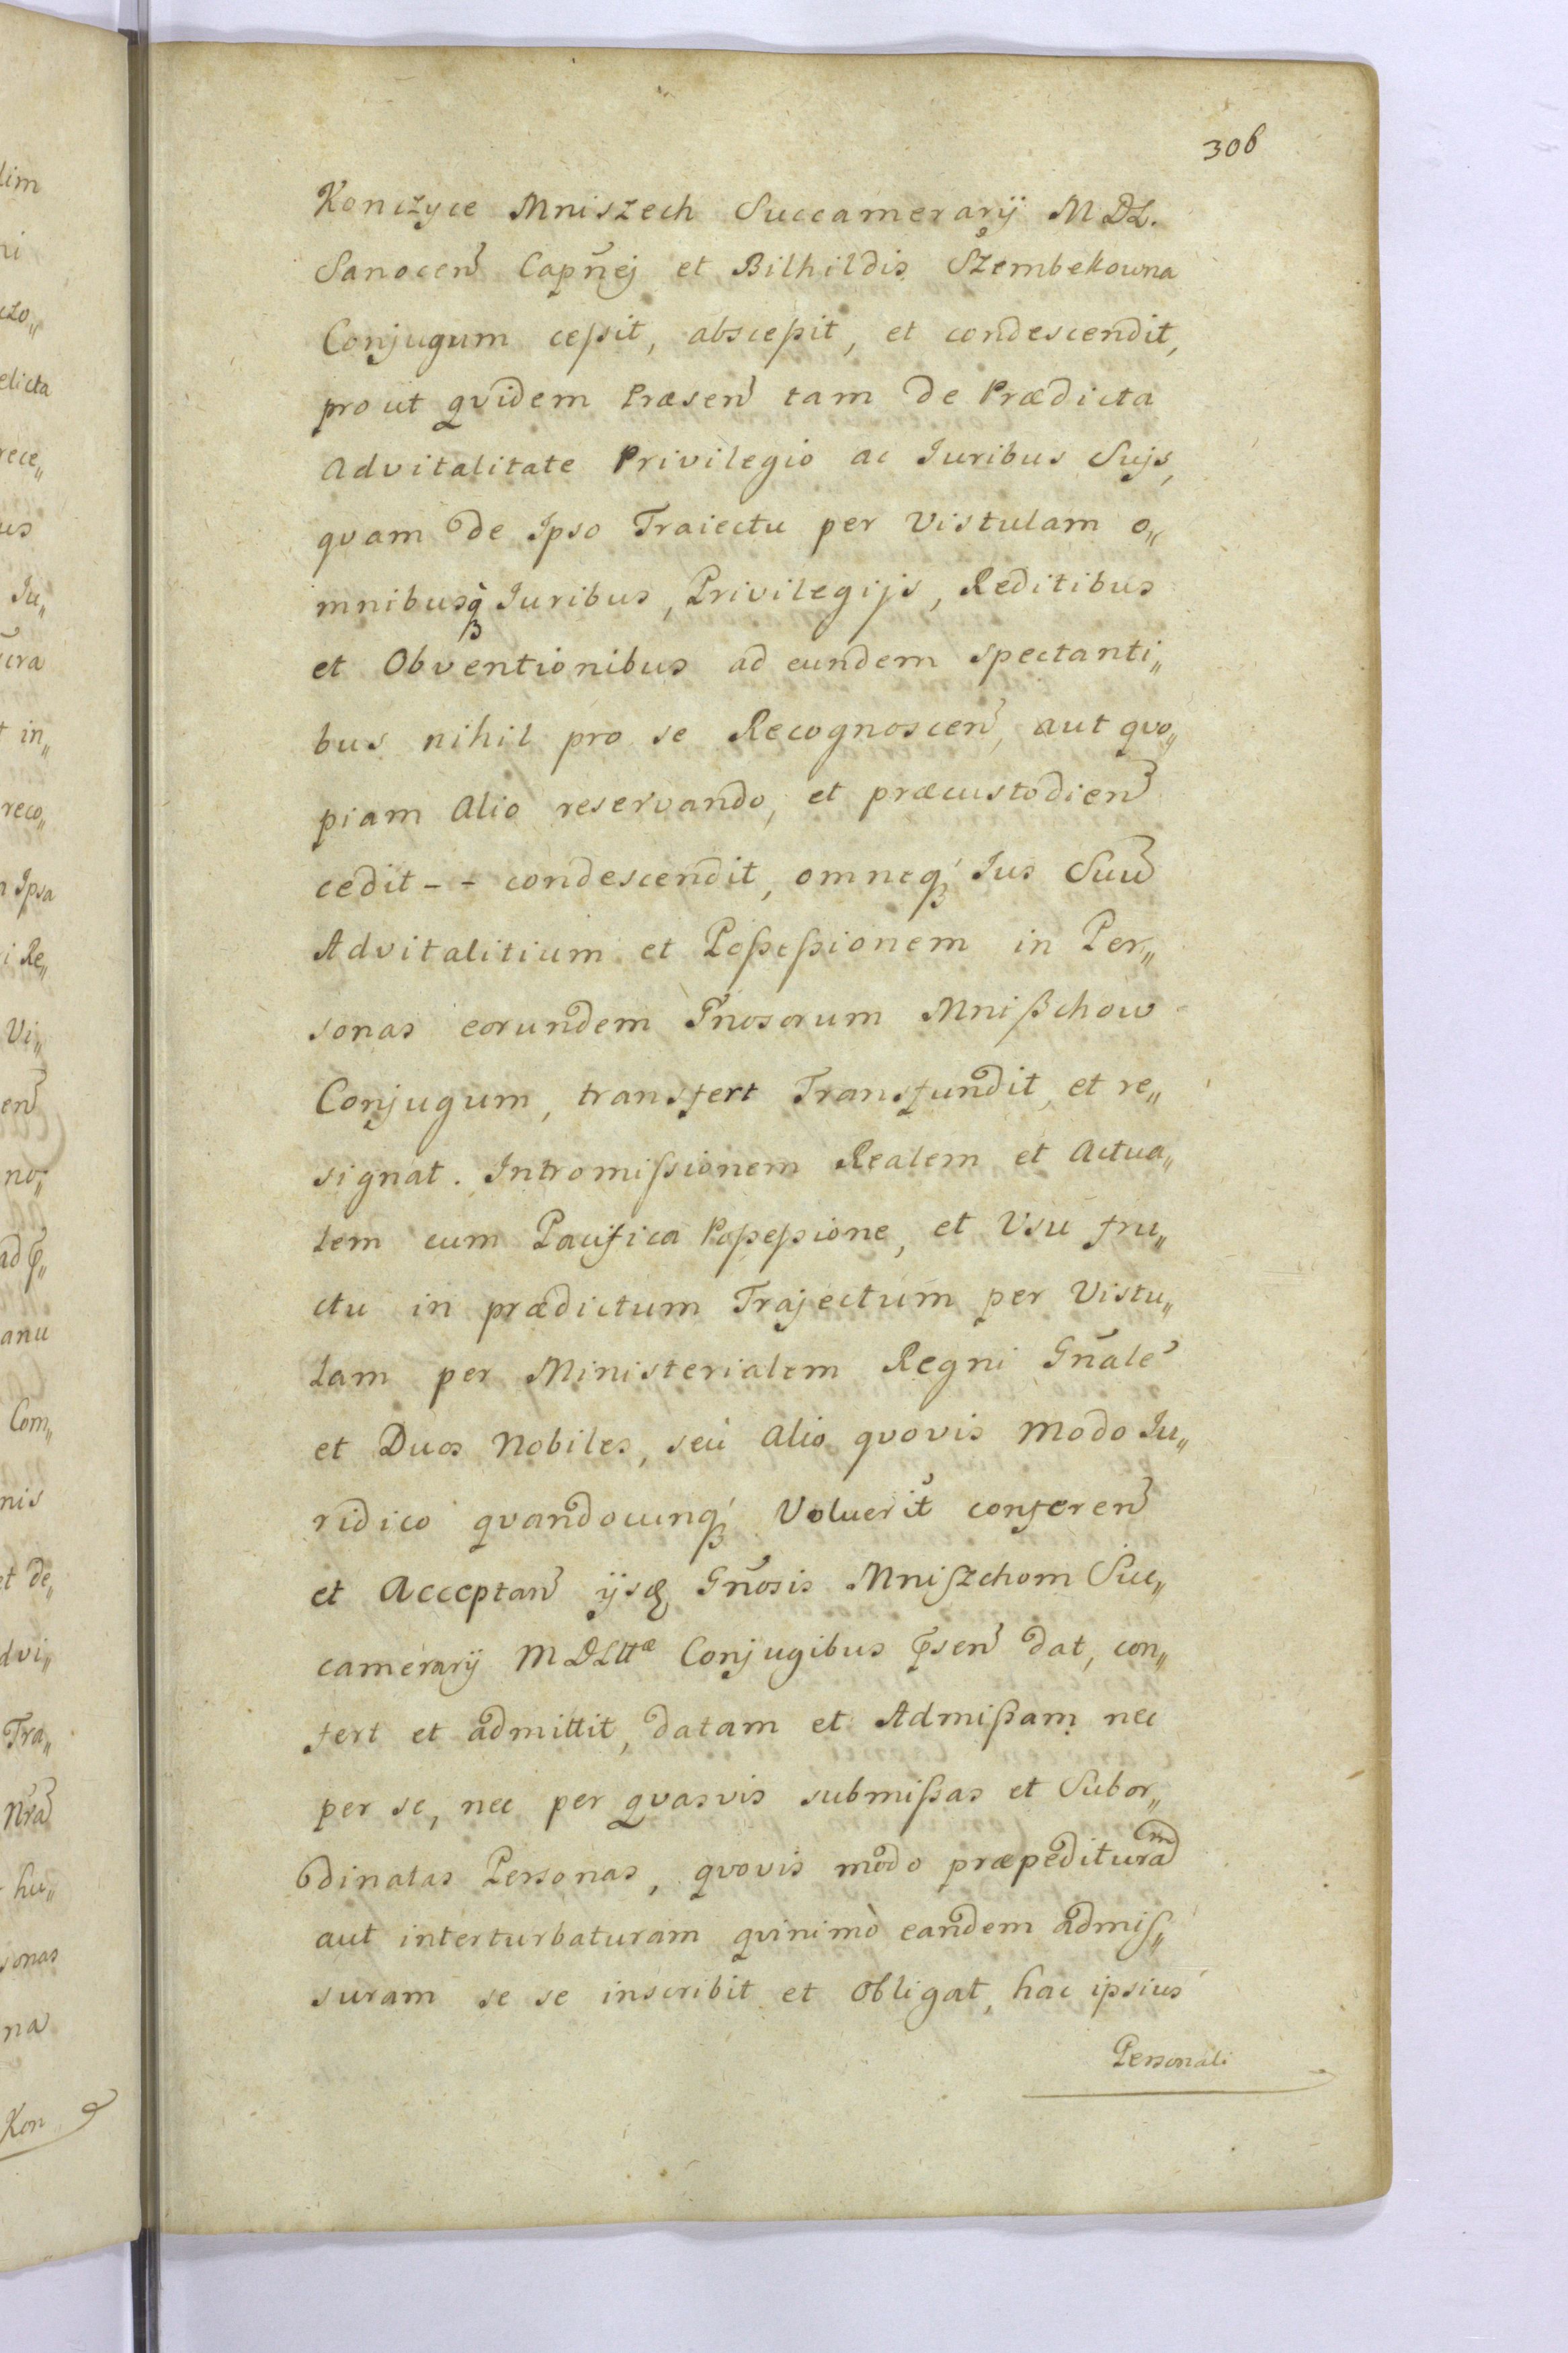 306
Konczyce Mniszech Succamerarij M D L.
Sanocen̄ Capn̄ej et Bilhildis Szembekowna
Conjugum ceſsit, absceſsit, et condescendit,
pro ut qvidem Præsen̄ tam de Prædicta
Advitalitate Privilegio ac Iuribus Suijs,
qvam de Ipso Traiectu per Vistulam o„
mnibusq̀ Iuribus, Privilegijs, Reditibus
et Obventionibus ad eundem spectanti„
bus nihil pro se Recognoscen̄, aut qvo„
piam Alio reservando, et præcustodien̄
cedit - - condescendit, omneq́ Ius Suū
Advitalitium et Poſseſsionem in Per„
sonas eorundem Gn̄osorum Mniſzchow
Conjugum, transfert Transfundit, et re„
signat. Intromiſsionem Realem et Actua„
lem cum Pacifica Poſseſsione, et Vsu fru„
ctu in prædictum Trajectum per Vistu„
lam per Ministerialem Regni Gn̄alē
et Duos Nobiles, seù Alio qvovis modo Iu„
ridico qvandocunq́ Voluerīt conferen̄
et Acceptan̄ ijsdę Gn̄osis Mniſzchom Suc„
camerarij M D Lttæ Conjugibus p̄sen̄ dat, con„
fert et admittit, datam et Admiſsam nec
per se, nec per qvasvis submiſsas et Subor„
dinatas Personas, qvovis modo præpedituram
aut interturbaturam qvinimò eandem admiſ„
suram se se inscribit et obligat, hac ipsius
Personali
lim
ni
elicta
rece„
us
Iu„
in„
reco„
Ipsa
i Re„
Vi„
en̄
no„
anu
Com„
nis
et de„
dvi„
Tra„
n̄ra
hu„
sonas
na
Kon